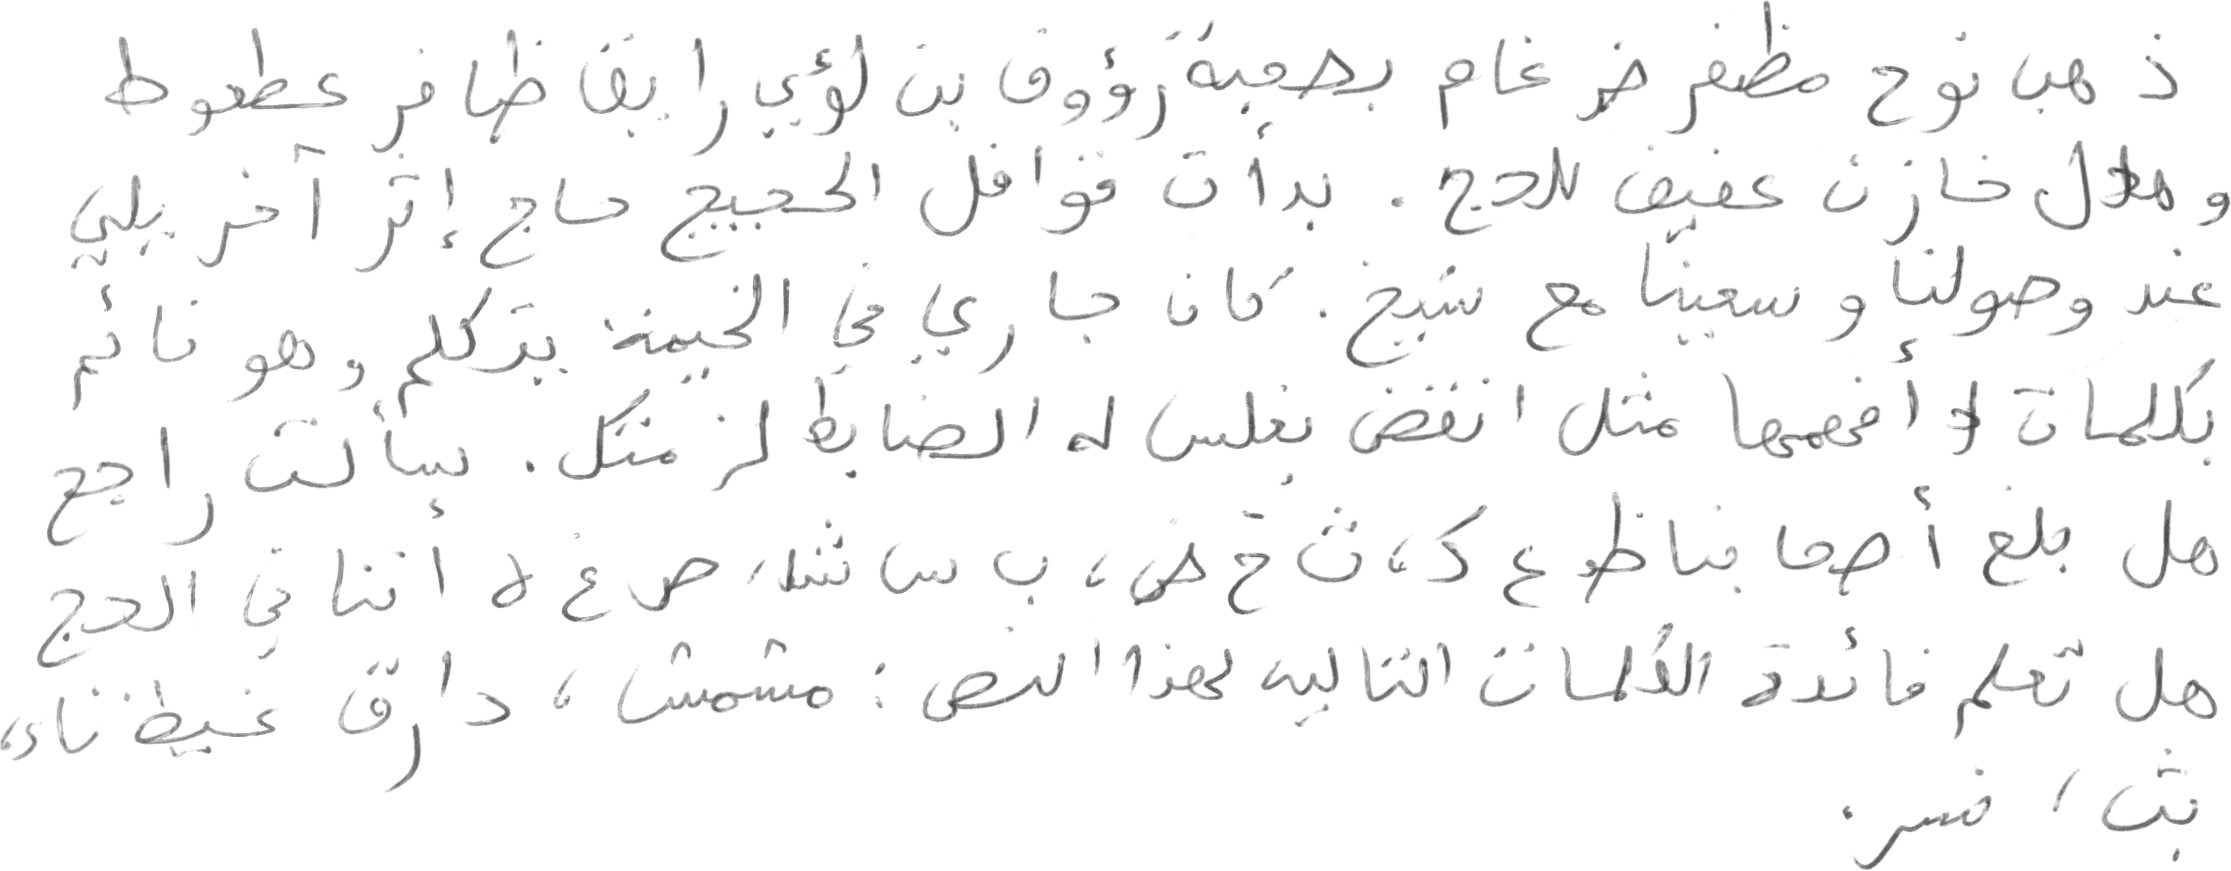 ذهب نوح مظفر ضرغام بصحبة رؤوف بن لؤي رايق ظافر عطعوط
وهلال خازن عفيف للحج. بدأت قوافل الحجيج حاج إثر آخر يلبي
عند وصولنا وسعينا مع شيخ. كان جاري في الخيمة يتكلم وهو نائم
بكلمات لا أفهمها مثل انقض بغلس له الضابط لز متكل. سألت راجح
هل بلغ أضحا بناظ ع ك، ث خ ض، ب س شد، ص غ لا أننا في الحج
هل تعلم فائدة الكلمات التاليه لهذا النص: مشمش، دارق غيظ ناء،
بث، فسر.